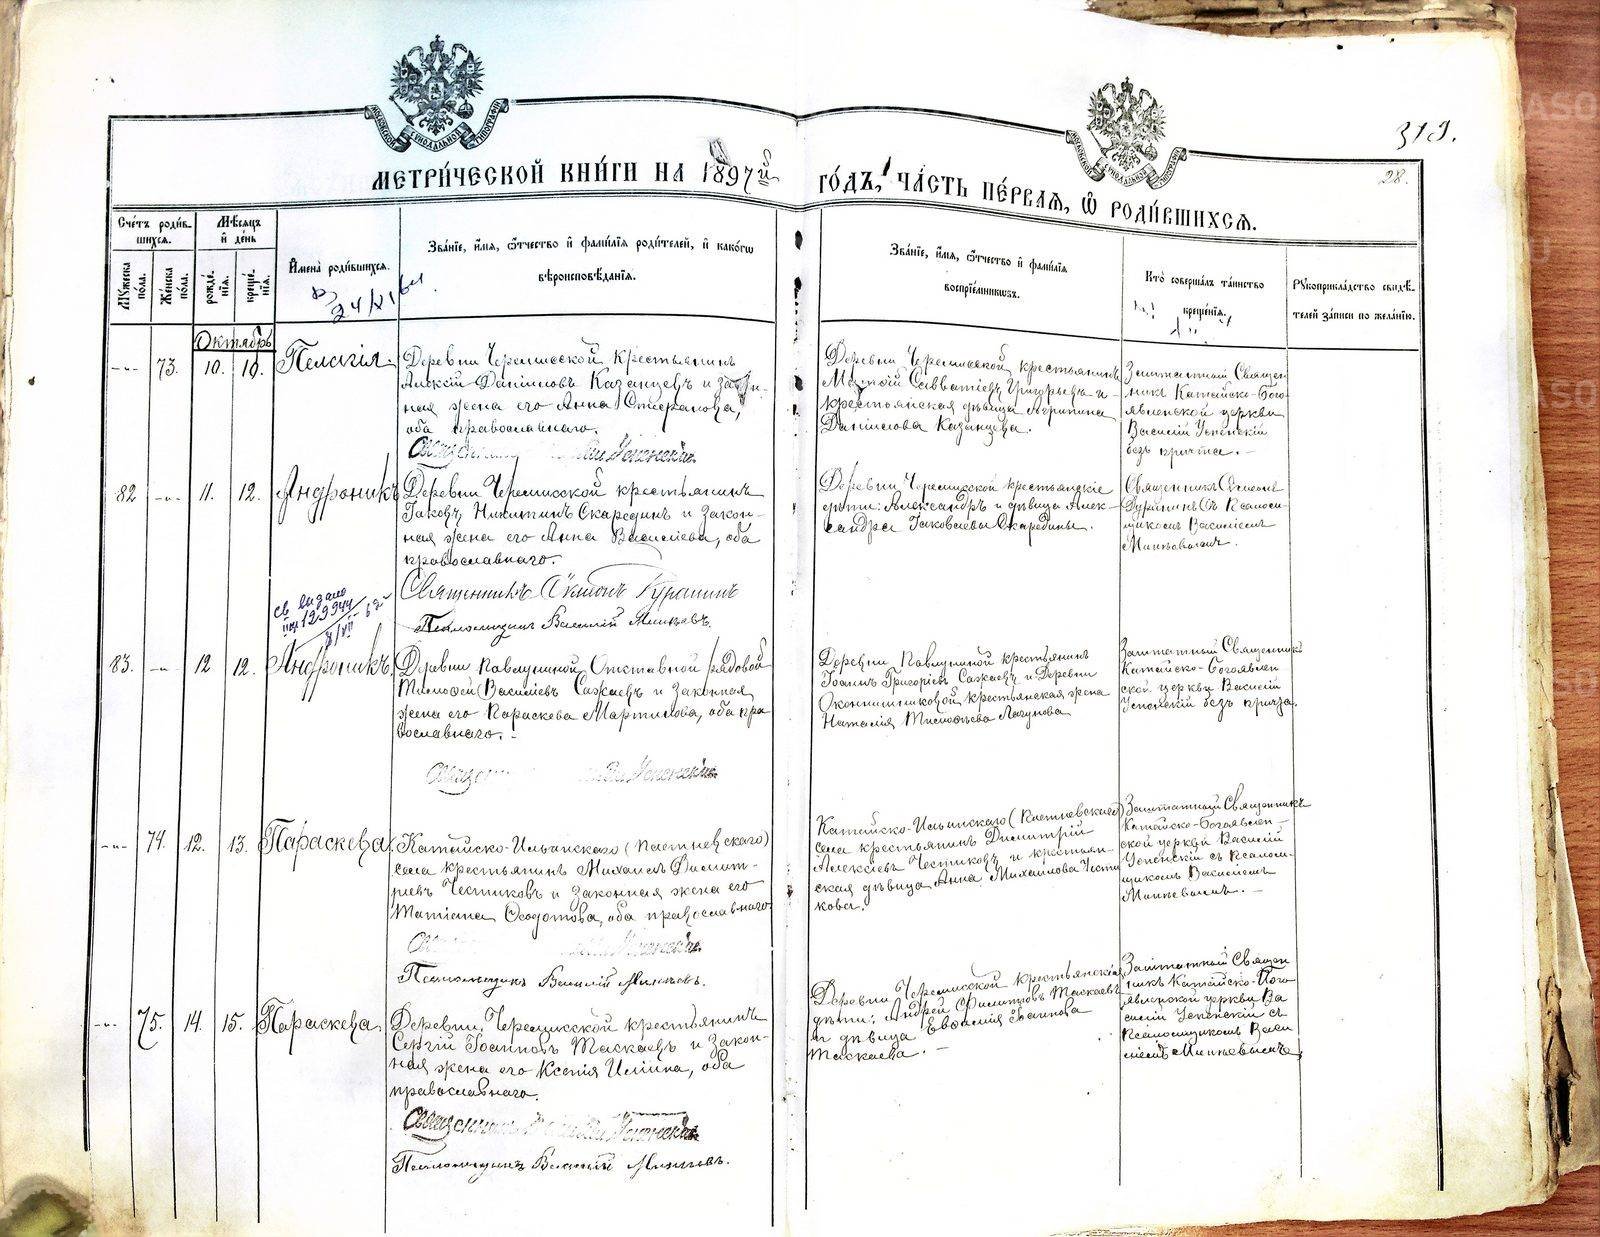 МОСКОВСКОЙ СѴНОДАЛЬНОЙ ТИПОГРАФІИ
МОСКОВСКОЙ СѴНОДАЛЬНОЙ ТИПОГРАФІИ
319.
28.
МЕТРИ́ЧЕСКОЙ КНИ́ГИ НА 1897й
ГО́ДЪ, ЧА́СТЬ ПЕ́РВАѦ, Ѡ҆ РОДИ́ВШИХСѦ.
Сче́тъ роди́в-
шихся.
Мѣ́сяцъ
и҆ де́нь
Му́жеска по́ла.
Же́нска по́ла.
рожде́нїя.
креще́нїя.
И҆мена̀ роди́вшихся.
24/XI 64
Зва́нїе, и҆́мя, ѻ҆́тчество и҆ фами́лїя роди́телей, и҆ како́гѡ
вѣроисповѣ́данїя.
Зва́нїе, и҆́мя, ѻ҆́тчество и҆ фами́лїя
воспрїе́мникѡвъ.
Кто̀ соверша́лъ та́инство
креще́нїя.
Рукоприкла́дство свидѣ́-
телей за́писи по жела́нїю.
Октябрь
-„- 73. 10. 10. Пелагія.
Деревни Черемисской крестьянинъ
Алексій Даниловъ Казанцевъ и закон-
ная жена его Анна Стефанова,
оба православнаго.
Священникъ Успенскій
Деревни Черемисской крестьянинъ
Матѳій Савватіевъ Григорьевъ и
крестьянская дѣвица Агрипина
Данилова Казанцева.
Заштатный Священ-
никъ Катайско-Бого-
явленской церкви
Василій Успенскій
безъ причта. -
82 -„- 11. 12. Андроникъ
Деревни Черемисской крестьянинъ
Іаковъ Никитинъ Скарединъ и закон-
ная жена его Анна Васильева, оба
православнаго.
Священникъ Сѵмеонъ
Псаломщикъ Василій
Деревни Черемисской крестьянскіе
дѣти: Александръ и дѣвица Алек-
сандра Іаковлевы Скаредины.
Священникъ Сѵмеонъ
съ Псалом-
щикомъ Василіемъ
св выдано
129944
83. -„- 12 12. Андроникъ.
Деревни Павлуниной Отставной рядовой
Тимофей Васильевъ Сажаевъ и Законная
жена его Параскева Мартинова, оба пра
вославнаго. -
Успенскій
Деревни Павлуниной крестьянинъ
Іоаннъ Григоріевъ Сажаевъ и Деревни
Оконишниковой крестьянская жена
Наталія Тимофѣева Лагунова
Заштатный Священникъ
Катайско-Богоявлен
ской церкви Василій
Успенскій безъ причта.
-„- 74. 12. 13. Параскева.
Катайско-Ильинскаго (Пастневскаго)
села крестьянинъ Михаилъ Димит-
ріевъ Честиковъ и Законная жена его
Татіана Ѳеодотова, оба православнаго
Успенскій
Псаломщикъ Василій
Катайско-Ильинскаго (Пастневскаго)
села крестьянинъ Димитрій
Алексіевъ Честиковъ и крестьян-
ская дѣвица Анна Михаилова Чести
кова.
Заштатный Священникъ
Катайско-Богоявлен-
ской церкви Василій
Успенскій съ Псалом-
щикомъ Василіемъ
-„- 75. 14. 15. Параскева
Деревни Черемисской крестьянинъ
Сергій Іоанновъ Таскаевъ и Закон-
ная жена его Ксенія Иліина, оба
православнаго.
Священникъ Успенскій
Псаломщикъ Василій
Деревни Черемисской крестьянскія
дѣти: Андрей Филипповъ Таскаевъ
и дѣвица Евфалія Іоаннова
Таскаева. -
Заштатный Священ
никъ Катайско-Бого
явленской церкви Ва
силій Успенскій съ
Псаломщикомъ Васи
ліемъ